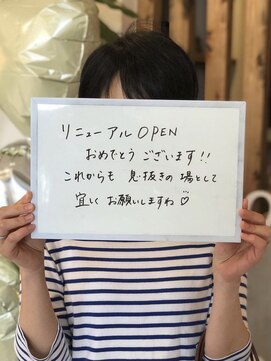 リニューアル OPEN
おめでとう ございます!!
これからも 息抜きの 場として
宜しく お願いしますね♡